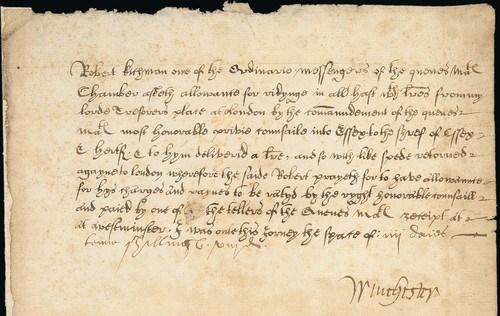 Robert Richman one of the Ordinarie messengers of the quenes Ma
Chamber asketh allowance for rydynge in all hast wth lres from my
lorde Tresorers place at london by the comaundement of the quenes
Mats most honorable privie counsaile into Essex to the Shref of Essex
& hertf. & to hym deliverid a lre, and so with like spede retorned
agayne to london wherefore the saide Robert prayeth for to have allowance
for hys charges and paynes to be rated by the ryght honorable counsaill
and paied by one of the tellers of the Quenes Mats receipt at
at westminster, & was one this jorney the space of iiij daies
Winchester